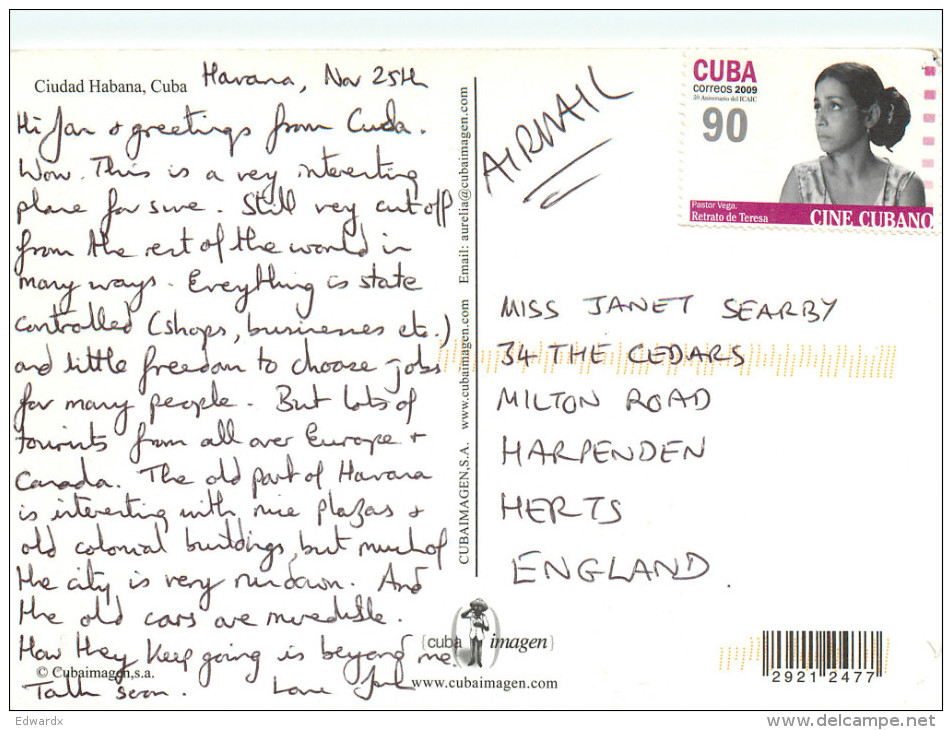 Ciudad Habana, Cuba
Havana, Nov 25th
Hi Jan & greetings from Cuba.
Wow. This is a very interesting
place for sure. Still very cut off
from the rest of the world in
many ways. Everything is state
controlled (shops, businesses etc.)
and little freedom to choose jobs
for many people. But lots of
tourists from all over Europe +
Canada. The old part of Havana
is interesting with nice plazas &
old colonial buildings, but much of
the city is very rundown. And
the old cars are incredible.
How they keep going is beyond me.
Talk soon. Love
© Cubaimagen,s.a.
CUBAIMAGEN,S.A. www.cubaimagen.com Email: aurelia@cubaimagen.com
cuba imagen
www.cubaimagen.com
AIRMAIL
CUBA
correos 2009
50 Aniversario del ICAIC
90
Pastor Vega.
Retrato de Teresa
CINE CUBANO
MISS JANET SEARBY
34 THE CEDARS
MILTON ROAD
HARPENDEN
HERTS
ENGLAND.
2921 2477
Edwardx
www.delcampe.net